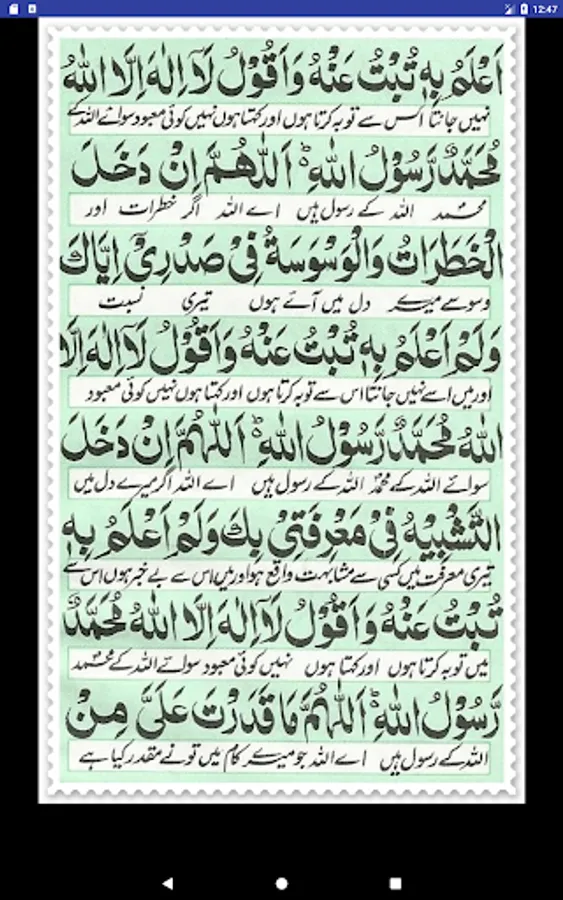 12:47
اَعْلَمُ بِهٖ تُبْتُ عَنْهُ وَاَقُوْلُ لَآ اِلٰهَ اِلَّا اللهُ
نہیں جانتا اس سے توبہ کرتا ہوں اور کہتا ہوں نہیں کوئی معبود سوائے اللہ کے
مُحَمَّدٌ رَّسُوْلُ اللهِ ؕ اَللّٰهُمَّ اِنْ دَخَلَ
محمد اللہ کے رسول ہیں اے اللہ اگر خطرات اور
الْخَطَرَاتُ وَالْوَسْوَسَةُ فِیْ صَدْرِیْ اِيَّاكَ
وسوسے میرے دل میں آئے ہوں تیری نسبت
وَلَمْ اَعْلَمُ بِهٖ تُبْتُ عَنْهُ وَاَقُوْلُ لَآ اِلٰهَ اِلَّا
اور میں اسے نہیں جانتا اس سے توبہ کرتا ہوں اور کہتا ہوں نہیں کوئی معبود
اللهُ مُحَمَّدٌ رَّسُوْلُ اللهِ ؕ اَللّٰهُمَّ اِنْ دَخَلَ
سوائے اللہ کے محمد اللہ کے رسول ہیں اے اللہ اگر میرے دل میں
التَّشْبِيْهُ فِیْ مَعْرِفَتِیْ بِكَ وَلَمْ اَعْلَمُ بِهٖ
تیری معرفت میں کسی سے مشابہت واقع ہو اور میں اس سے بے خبر ہوں اس سے
تُبْتُ عَنْهُ وَاَقُوْلُ لَآ اِلٰهَ اِلَّا اللهُ مُحَمَّدٌ
میں توبہ کرتا ہوں اور کہتا ہوں نہیں کوئی معبود سوائے اللہ کے محمد
رَّسُوْلُ اللهِ ؕ اَللّٰهُمَّ مَا قَدَرْتَ عَلَیَّ مِنْ
اللہ کے رسول ہیں اے اللہ جو میرے کام میں تو نے مقدر کیا ہے